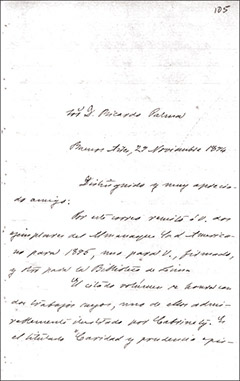 105
Sor D. Ricardo Palma
Buenos Aires, 27 Noviembre 1894
Distinguido y muy aprecia-
do amigo:
Por este correo remito á V. dos
ejemplares del Almanaque Sud Americano
para 1895, uno para V., firmado,
y otro para la Biblioteca de Lima.
El citado volúmen se honra con
dos trabajos suyos, uno de ellos admi-
rablemente ilustrado por Cabrinety. Es
el titulado "Caridad y prudencia epis-